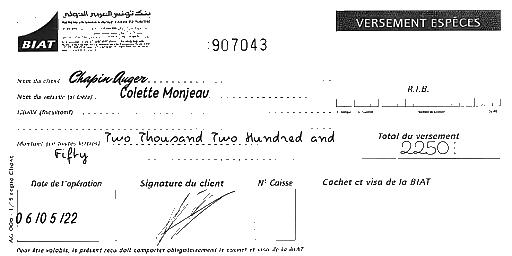 بنك تونس العربي الدولي
BIAT
VERSEMENT ESPÈCES
907043
Nom du client Chapin Auger
Nom du verseur (si tiers) Colette Monjeau
R.I.B.
Libellé (facultatif)
Montant (en toutes lettres) Two Thousand Two Hundred and
Fifty
Total du versement
2250
Date de l'opération
Signature du client
N° Caisse
Cachet et visa de la BIAT
06/05/22
Pour être valable, le présent reçu doit comporter obligatoirement le cachet et visa de la BIAT